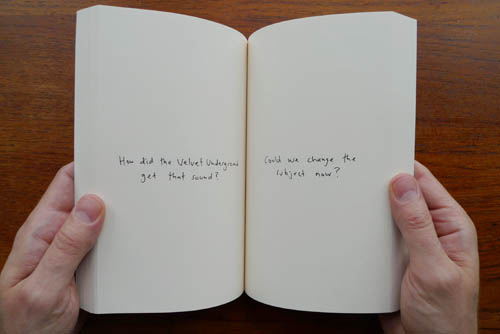 How did the Velvet Underground
get that sound?
Could we change the
subject now?